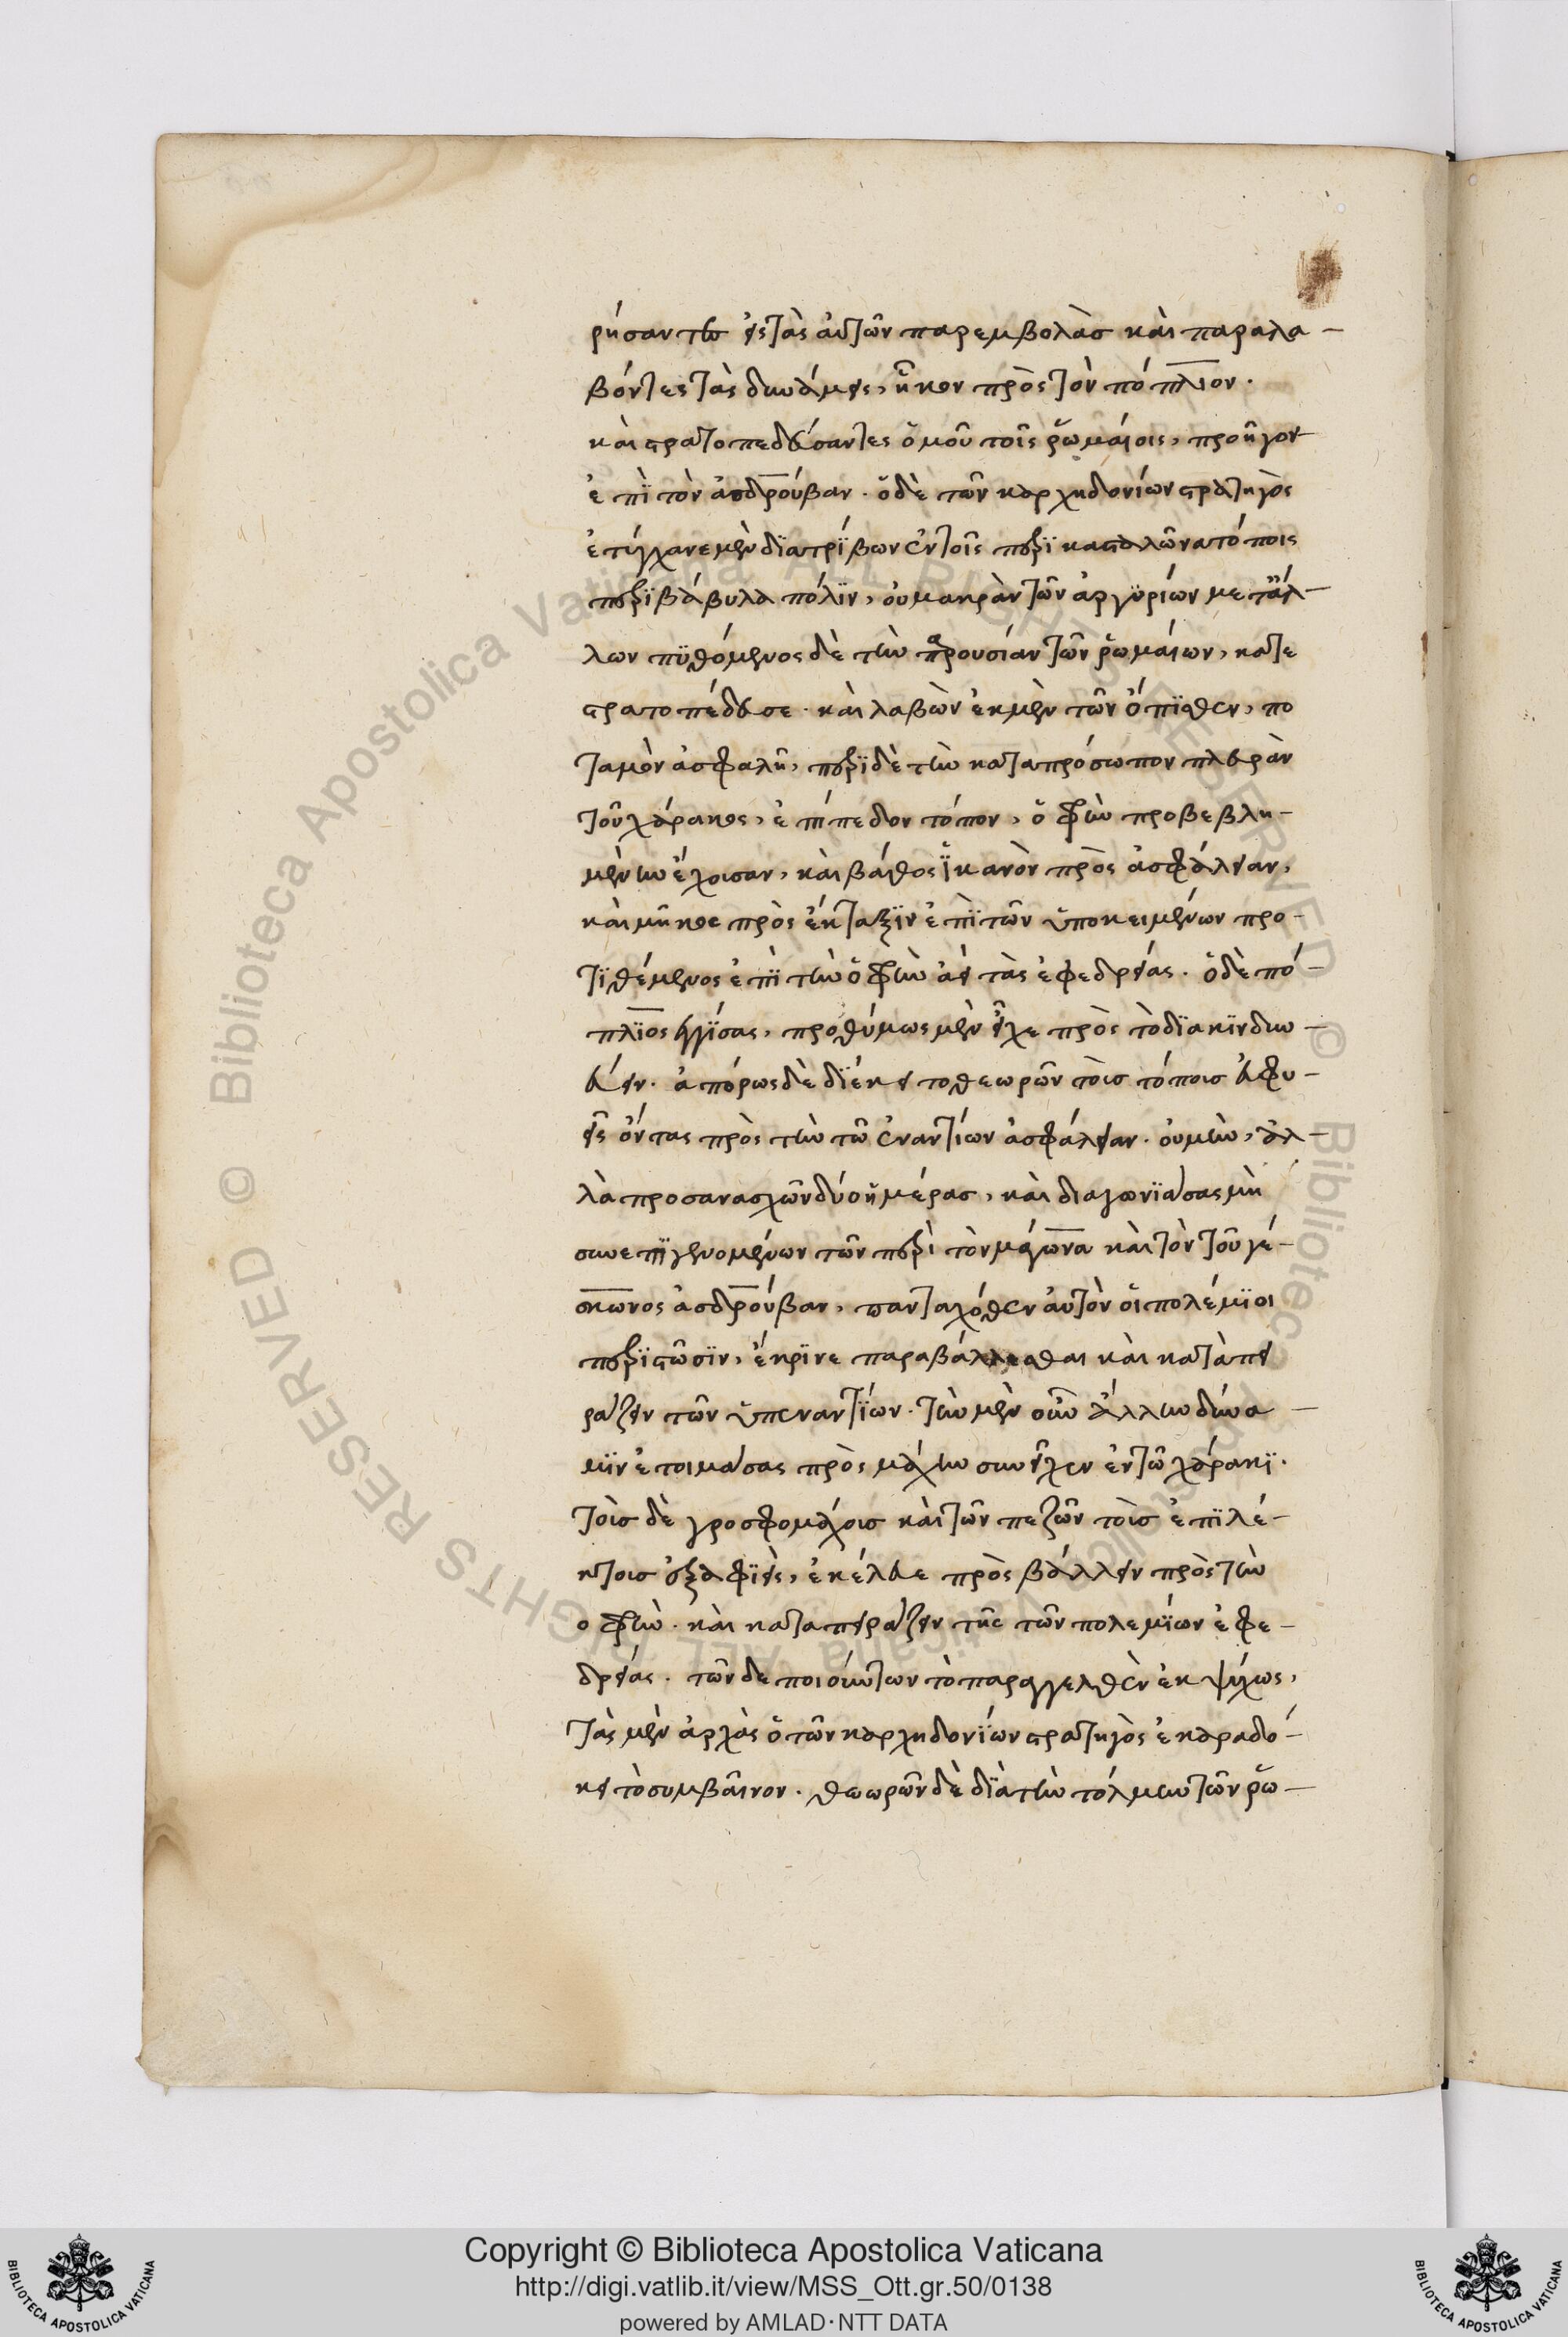 ρήσαντο εἰς τὰς αὐτῶν παρεμβολὰσ καὶ παραλα-
βόντες τὰς δυνάμεις, ἧκον πρὸς τὸν πόπλιον.
καὶ στρατοπεδεύσαντες ὁμοῦ τοῖς ῥωμαίοις, προῆγον
ἐπὶ τὸν ἀσδρούβαν. ὁ δὲ τῶν καρχηδονίων στρατηγὸς
ἐτύγχανε μὲν διατρίβων ἐν τοῖς περὶ κασταλῶνα τόποις
περὶ βάβυλα πόλϊν, οὐ μακρὰν τῶν ἀργυρίων μετάλ-
λων πϋθόμενος δὲ τὴν παρουσίαν τῶν ῥωμαίων, κατε
στρατοπέδευσε. καὶ λαβὼν ἐκ μὲν τῶν ὄπϊσθεν, πο
ταμὸν ἀσφαλῆ, περὶ δὲ τὴν κατὰ πρόσωπον πλευρὰν
τοῦ χάρακος, ἐπίπεδον τόπον, ὀφρὺν προβεβλη-
μένην ἔχοισαν, καὶ βάθος ἱκανὸν πρὸς ἀσφάλειαν,
καὶ μῆκος πρὸς ἔκταξϊν ἐπὶ τῶν ὑποκειμένων προ-
τϊθέμενος ἐπὶ τὴν ὀφρὺν ἀεὶ τὰς ἐφεδρείας. ὁ δὲ πό-
πλϊος ἐγγίσας, προθύμως μὲν εἶχε πρὸς τὸ διακϊνδυν-
εύειν. ἀπόρως δὲ διέκειτο θεωρῶν τοὶσ τόποισ εὐφυ-
εῖς ὄντας πρὸς τὴν τῶ ἐναντίων ἀσφάλειαν. οὐ μὴν, ἀλ-
λὰ προσανασχὼν δύο ἡμέρασ, καὶ διαγωνϊάσας μὴ
συνεπϊγενομένων τῶν περὶ τὸν μάγωνα καὶ τὸν τοῦ γέ-
σκωνος ἀσδρούβαν, πανταχόθεν αὐτὸν οἱ πολέμϊοι
περιστῶσϊν, ἔκρϊνε παραβάλλεσθαι καὶ καταπει
ράζειν τῶν ὑπεναντϊων. τὴν μὲν οὖν ἄλλην δύνα-
μϊν ἑτοιμάσας πρὸς μάχην συνεῖχεν ἐν τῶ χάρακϊ.
τοὶσ δὲ γροσφομάχοισ καὶ τῶν πεζῶν τοὶσ ἐπιλέ-
κτοισ ἐξαφϊεὶς, ἐκέλευε πρὸς βάλλειν πρὸς τὴν
οφρὺν. καὶ καταπειράζειν τῆς τῶν πολεμϊων ἐφε-
δρείας. τῶν δε ποιούντων τὸ παραγγελθὲν ἐκψύχως,
τὰς μὲν ἀρχὰς ὁ τῶν καρχηδονϊων στρατηγὸς ἐκαραδό-
κει τὸ συμβαῖνον. θεωρῶν δὲ διὰ τὴν τόλμην τῶν ῥω-
Copyright © Biblioteca Apostolica Vaticana
http://digi.vatlib.it/view/MSS_Ott.gr.50/0138
powered by AMLAD·NTT DATA